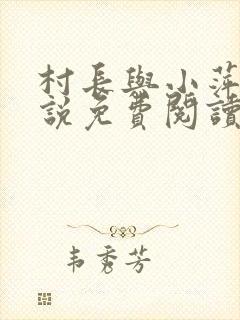 村長與小萍
說免費閱讀
韦秀芳